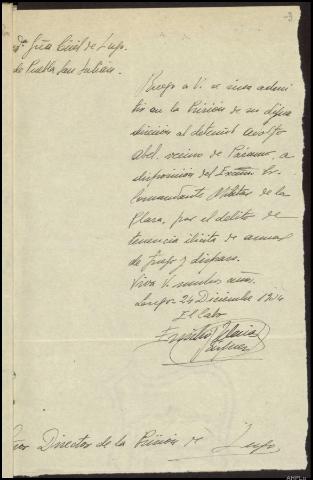 Cia Civil de Lugo.
de Puebla San Julián.
Ruego a V. se sirva admi
tir en la Prisión de su digna
dirección al detenido Adolfo
Abel, vecino de Páramo, a
disposición del Excmo Sr.
Comandante Militar de la
Plaza, por el delito de
tenencia ilícita de armas
de fuego y disparo.
Viva V. muchos años.
Lugo 24 Diciembre 19
El Cabo
Director de la Prisión de Lugo
AHPLu